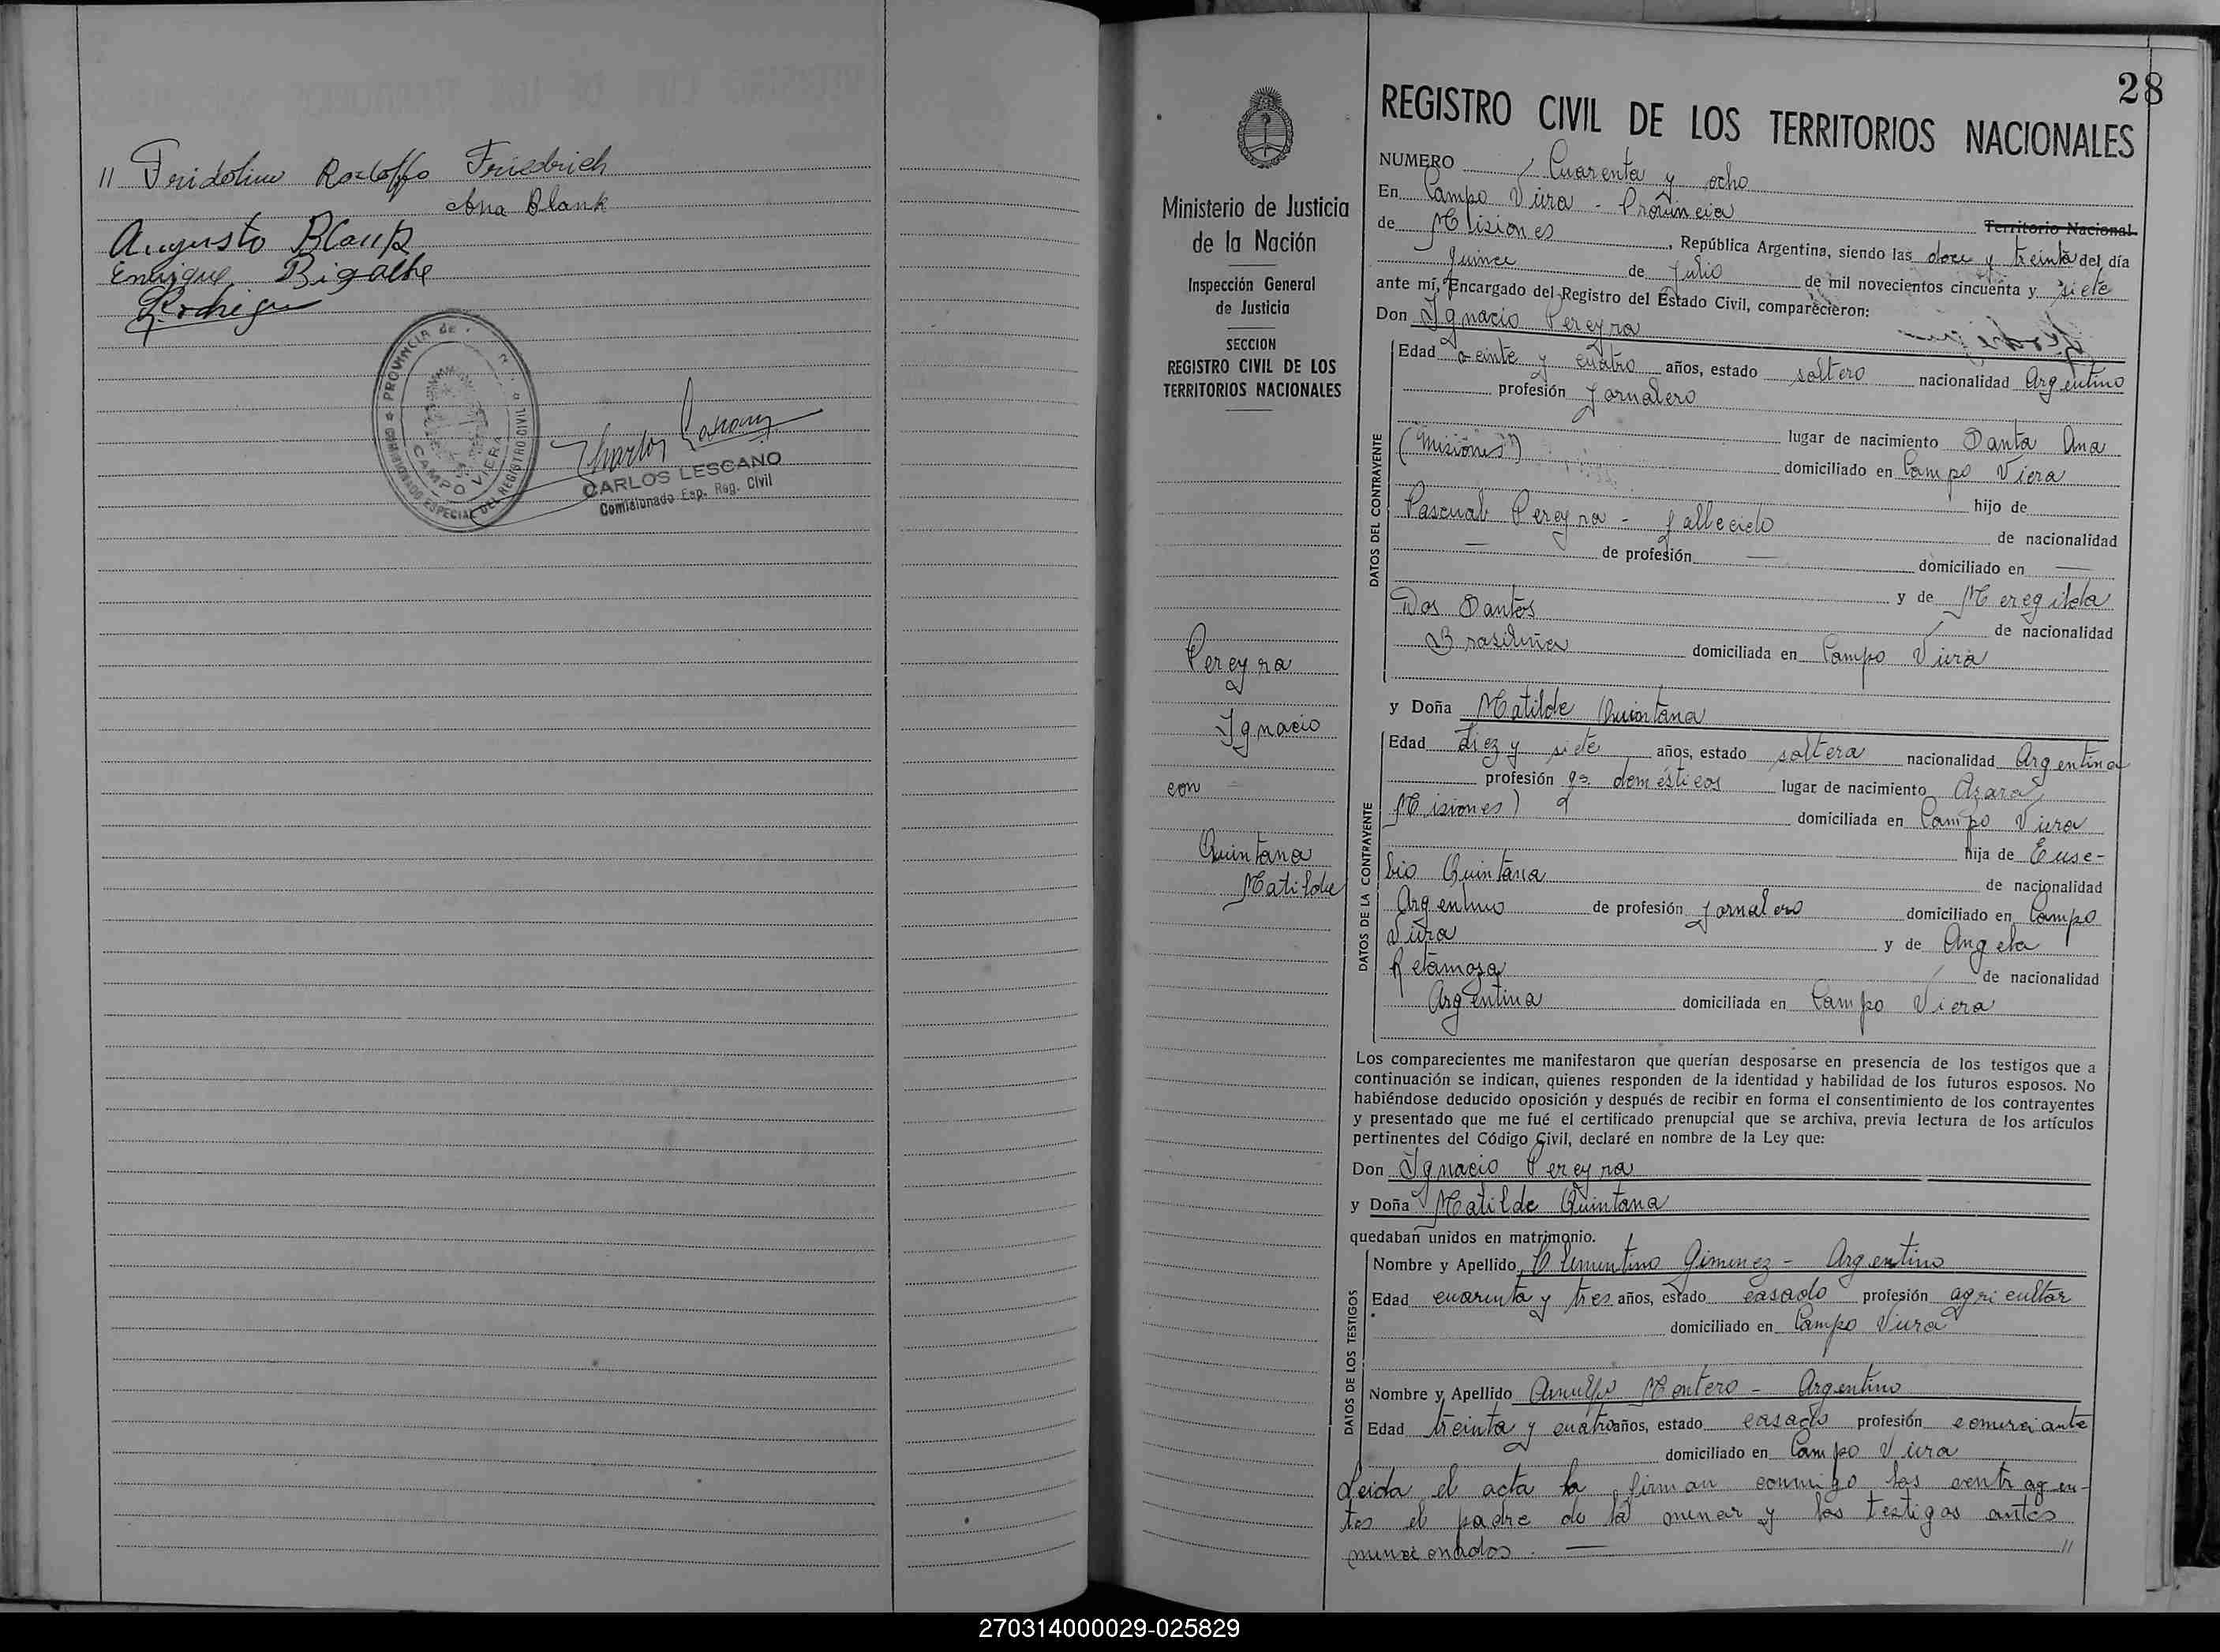 " Fridolino Rodolfo Friedrich
Ana Blank
Augusto Blank
Enrique Bigalke
PROVINCIA de
COMISIONADO ESPECIAL DEL REGISTRO CIVIL
CAMPO VIERA
CARLOS LESCANO
Comisionado Esp. Reg. Civil
28
Ministerio de Justicia
de la Nación
Inspección General
de Justicia
SECCION
REGISTRO CIVIL DE LOS
TERRITORIOS NACIONALES
Pereyra
Ignacio
con
Quintana
Matilde
REGISTRO CIVIL DE LOS TERRITORIOS NACIONALES
NUMERO Cuarenta y ocho
En Campo Viera - Provincia Territorio Nacional
de Misiones, República Argentina, siendo las doce y treinta del día
quince de Julio de mil novecientos cincuenta y siete
ante mí, Encargado del Registro del Estado Civil, comparecieron:
Don Ignacio Pereyra
DATOS DEL CONTRAYENTE
Edad veinte y cuatro años, estado soltero nacionalidad Argentino
profesión Jornalero
lugar de nacimiento Santa Ana
(Misiones) domiciliado en Campo Viera
hijo de
Pascual Pereyra - fallecido de nacionalidad
— de profesión — domiciliado en —
y de Meregilda
Dos Santos de nacionalidad
Brasileña domiciliada en Campo Viera
y Doña Matilde Quintana
DATOS DE LA CONTRAYENTE
Edad diez y siete años, estado soltera nacionalidad Argentina
profesión qs. domésticos lugar de nacimiento Azara
Misiones) domiciliada en Campo Viera
hija de Euse-
bio Quintana de nacionalidad
Argentino de profesión Jornalero domiciliado en Campo
Viera y de Angela
Retamoza de nacionalidad
Argentina domiciliada en Campo Viera
Los comparecientes me manifestaron que querían desposarse en presencia de los testigos que a
continuación se indican, quienes responden de la identidad y habilidad de los futuros esposos. No
habiéndose deducido oposición y después de recibir en forma el consentimiento de los contrayentes
y presentado que me fué el certificado prenupcial que se archiva, previa lectura de los artículos
pertinentes del Código Civil, declaré en nombre de la Ley que:
Don Ignacio Pereyra
y Doña Matilde Quintana
quedaban unidos en matrimonio.
DATOS DE LOS TESTIGOS
Nombre y Apellido Clementino Gimenez - Argentino
Edad cuarenta y tres años, estado casado profesión agricultor
domiciliado en Campo Viera
Nombre y Apellido Arnulfo Montero - Argentino
Edad treinta y cuatro años, estado casado profesión comerciante
domiciliado en Campo Viera
Leida el acta la firman conmigo los contrayen-
tes el padre de la menor y los testigos antes
mencionados. — "
270314000029-025829